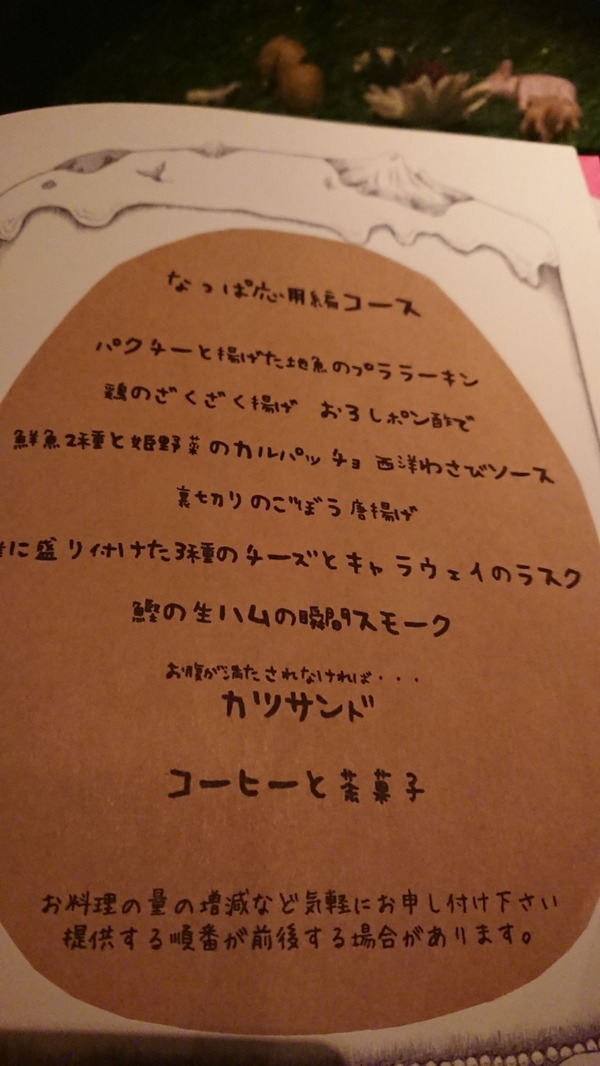 なっぱ応用編コース
パクチーと揚げた地魚のプララーキン
鶏のざくざく揚げ おろしポン酢で
鮮魚2種と姫野菜のカルパッチョ 西洋わさびソース
裏切りのごぼう唐揚げ
に盛り付けた3種のチーズとキャラウェイのラスク
鰹の生ハムの瞬間スモーク
お腹が満たされなければ・・・
カツサンド
コーヒーと茶菓子
お料理の量の増減など気軽にお申し付け下さい
提供する順番が前後する場合があります。